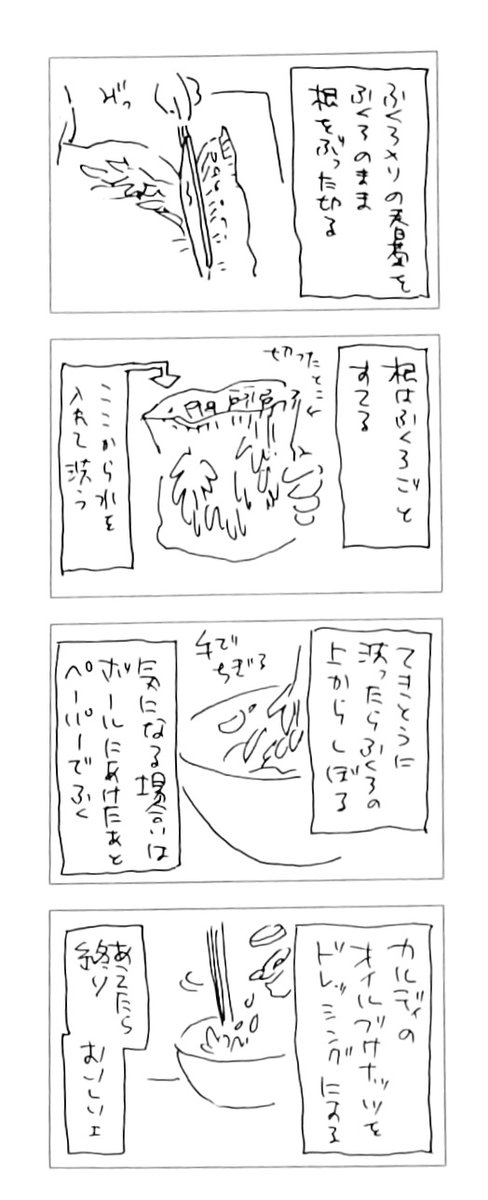 ふくろメリの春菊を
ふくろのまま
根をぶった切る
ざっ
根はふくろごと
すてる
切ったとこ
ここから水を
入れて洗う
てきとうに
洗ったらふくろの
上からしぼる
手で
ちぎる
気になる場合は
ボールにあけたあと
ペーパーでふく
カルディの
オイルづけナッツを
ドレッシングにする
あえたら
終り
おいしいよ